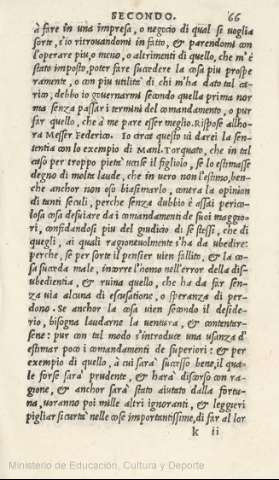 SECONDO. 66
à fare in una impresa, o negocio di qual si voglia
sorte, s'io ritrovandomi in fatto, & parendomi con
l'operare piu, o meno, o altrimenti di quello, che m'è
stato imposto, poter fare succedere la cosa piu prospe
ramente, o con piu utilità di chi m'ha dato tal ca-
rico, debbo io governarmi secondo quella prima nor
ma senza passar i termini del comandamento, o pur
far quello, che à me pare esser meglio. Rispose allho-
ra Messer Federico. Io circa questo ui darei la sen-
tentia con lo exempio di Manl. Torquato, che in tal
caso per troppo pietà uccise il figliolo, se lo estimasse
degno di molta laude, che in uero non l'estimo, ben-
che anchor non oso biasimarlo, contra la opinion
di tanti seculi, perche senza dubbio è assai perico-
losa cosa desuiar da i comandamenti de suoi maggio-
ri, confidandosi piu del giudicio di se stessi, che di
quegli, ai quali ragioneuolmente s'ha da ubedire:
perche, se per sorte il pensier uien fallito, & la co-
sa succeda male, incorre l'homo nell'error della dis-
ubedientia, & ruina quello, che ha da far sen-
za uia alcuna di escusatione, o speranza di per-
dono. Se anchor la cosa uien secondo il deside-
rio, bisogna laudarne la uentura, & contentar-
sene: pur con tal modo s'introduce una usanza d'
estimar poco i comandamenti de superiori: & per
exempio di quello, à cui sarà successo bene, il qua-
le forse sarà prudente, & harà discorso con ra-
gione, & anchor sarà stato aiutato dalla fortu-
na, uoranno poi mille altri ignoranti, & leggieri
pigliar sicurtà nelle cose importantissime, di far al lor
k ii
Ministerio de Educación, Cultura y Deporte